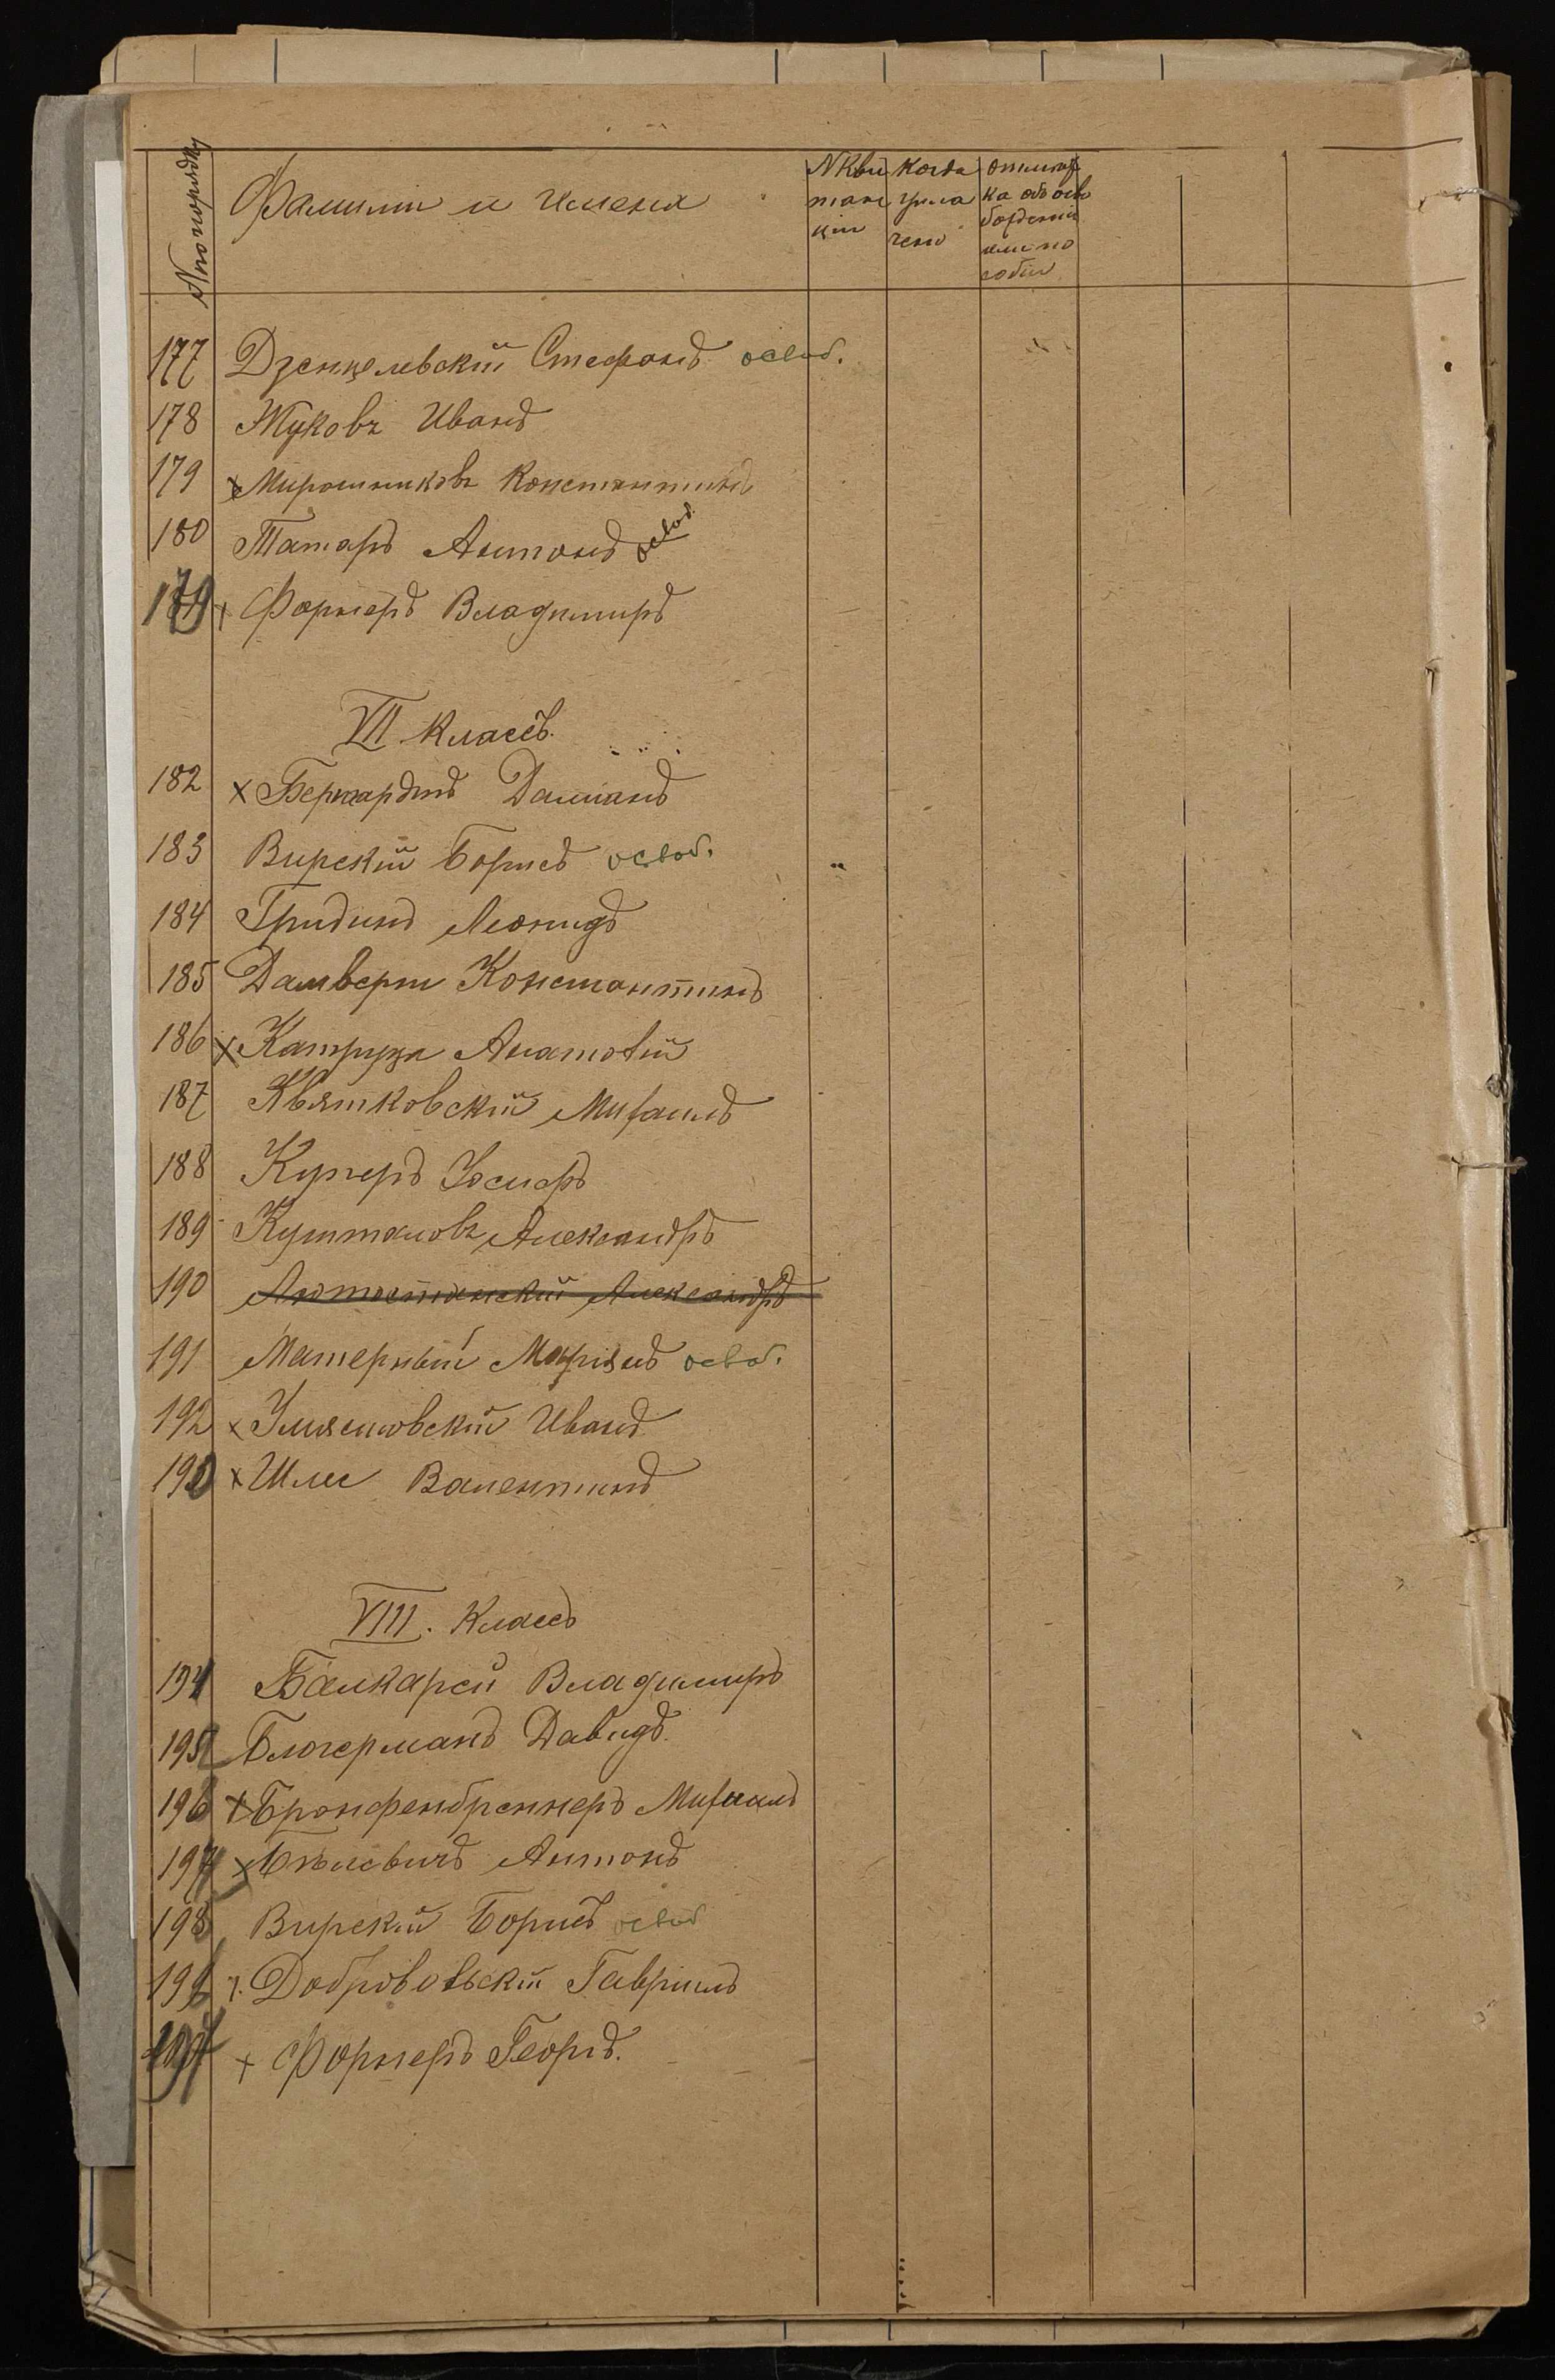 № по порядку
Фамилии и имена
№ кви
танц
ціи
Когда
упла
чено
отмет
ка объ осво
божденіи
или по
собіи
177 Дзенцелевскій Стефанъ освоб.
178 Жуковъ Иванъ
179 х Мирошниковъ Константинъ
180 Татаръ Антонъ освоб.
179 х Форнеръ Владимиръ
VII классъ.
182 х Бернардинъ Даміанъ
183 Вирскій Борисъ освоб.
184 Гридинъ Леонидъ
185 Даливерти Константинъ
186 х Катруза Анатолій
187 Квятковскій Михаилъ
188 Кучеръ Іосифъ
189 Александръ
190 Александръ
191 Матерный Маріянъ освоб.
192 х Иванъ
190 х Шлее Валентинъ
VIII. Классъ
194 Балкарей Владимиръ
195 Блюгерманъ Давидъ.
196 х Бронфенбреннеръ Михаилъ
197 х Бѣлевичъ Антонъ
198 Вирскій Борисъ освоб
196 х Добровольскій Гавріилъ
197 х Форнеръ Георгъ.